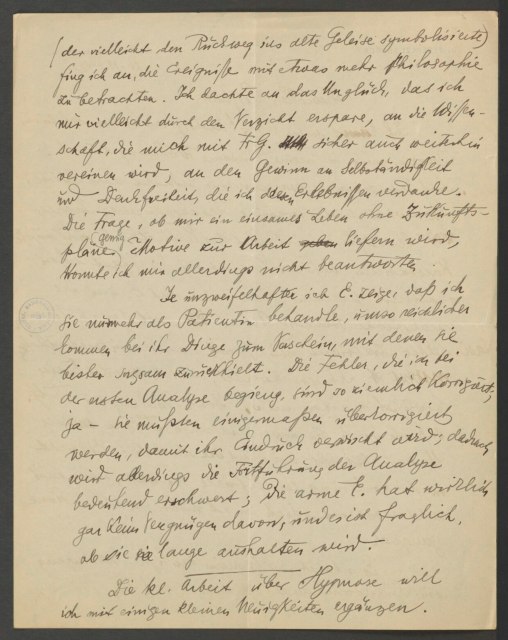 (der vielleicht den Rückweg ins alte Geleise symbolisierte)
fing ich an, die Ereignisse mit etwas mehr Philosophie
zu betrachten. Ich dachte an das Unglück, das ich
mir vielleicht durch den Verzicht erspare, an die Wissen-
schaft, die mich mit Fr G. sicher auch weiterhin
vereinen wird, an den Gewinn an Selbständigkeit
und Denkfreiheit, die ich den Erlebnissen verdanke.
Die Frage, ob mir ein einsames Leben ohne Zukunfts-
pläne genug Motive zur Arbeit liefern wird,
konnte ich mir allerdings nicht beantworten
Je unzweifelhafter ich E. zeige, daß ich
sie nunmehr als Patientin behandle, umso reichlicher
kommen bei ihr Dinge zum Vorschein, mit denen sie
bisher sorgsam zurückhielt. Die Fehler, die ich bei
der ersten Analyse begieng, sind so ziemlich korrigiert,
ja – sie mußten einigermaßen überkorrigiert
werden, damit ihr Eindruck verwischt wird; dadurch
wird allerdings die Fortführung der Analyse
bedeutend erschwert; die arme E. hat wirklich
gar kein Vergnügen davon, und es ist fraglich,
ob sie sie lange aushalten wird.
Die kl. Arbeit über Hypnose will
ich mit einigen kleinen Neuigkeiten ergänzen.